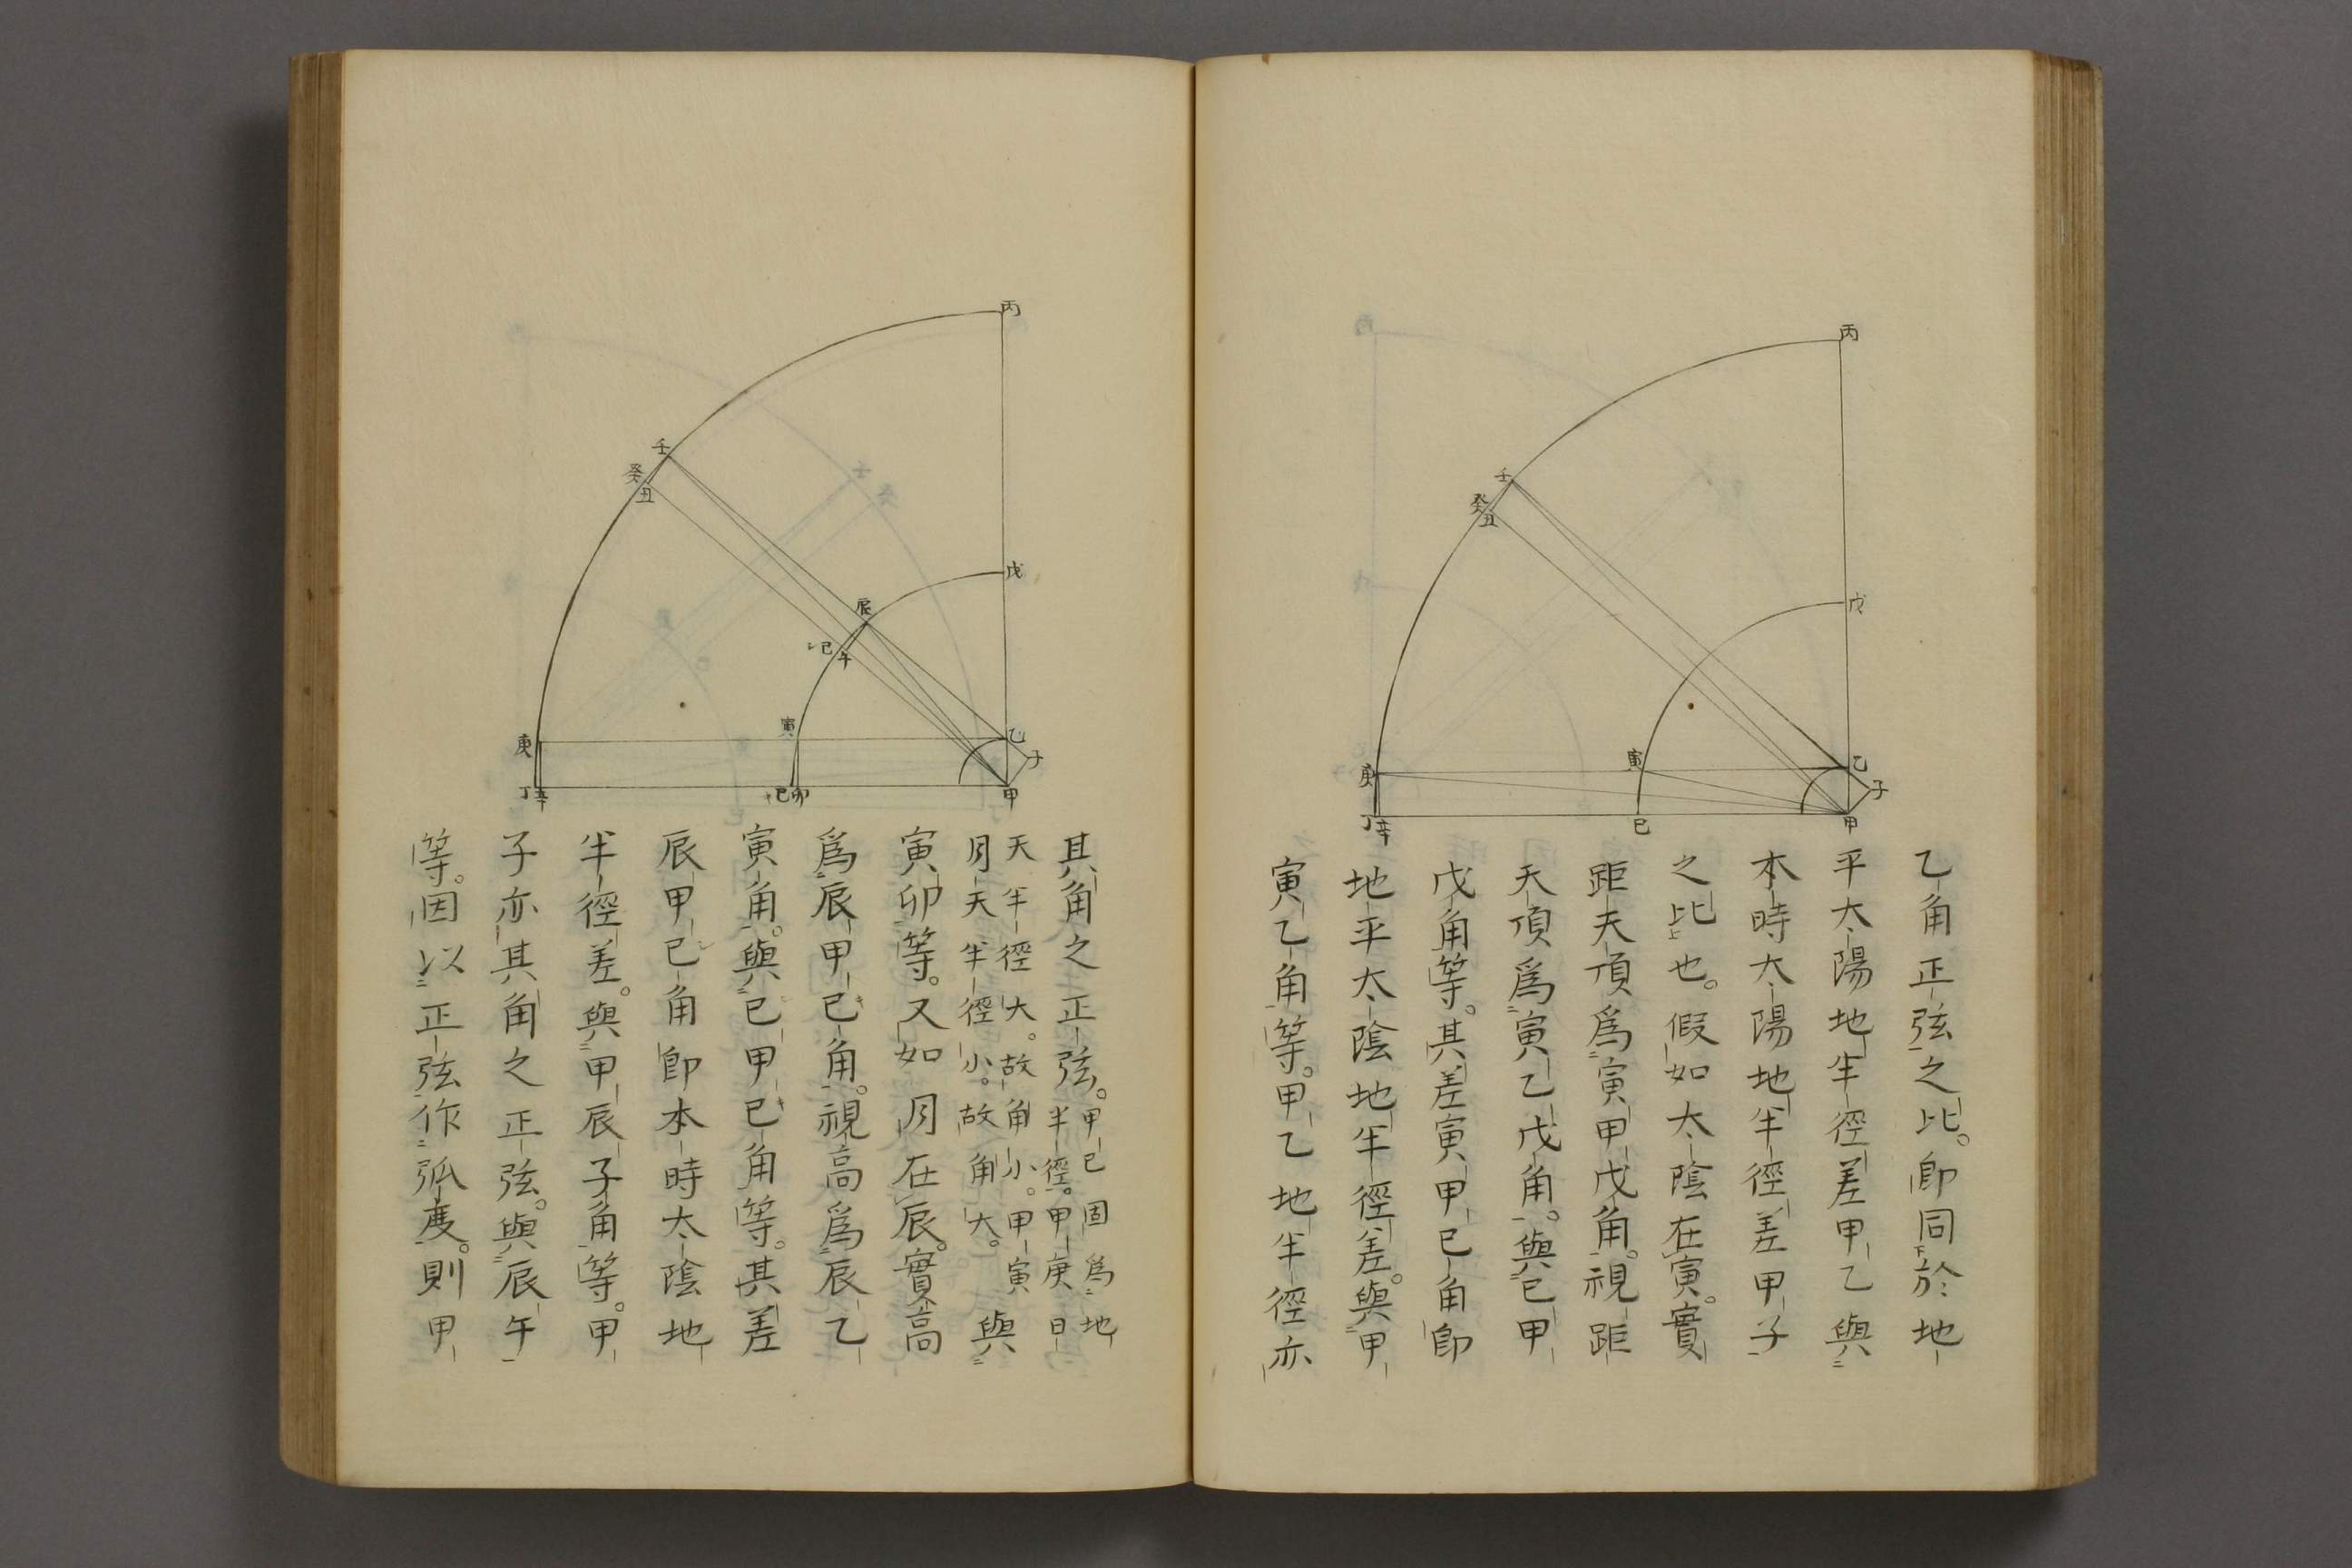 丙
壬
癸
丑
戊
庚
寅
乙
子
丁
辛
巳
甲
乙角正弦之比。即同於地
平太陽地半徑差甲乙與
本時太陽地半徑差甲子
之比也。假如太陰在寅。實
距天頂爲寅甲戊角。視距
天頂爲寅乙戊角。與巳甲
戊角等。其差寅甲巳角即
地平太陰地半徑差。與甲
寅乙角等。甲乙地半徑亦
丙
壬
癸
丑
戊
辰
巳
午
庚
寅
乙
子
丁
辛
巳
卯
甲
其角之正弦。甲巳固爲地
半徑。甲庚日
天半徑大。故角小。甲寅
月天半徑小。故角大。與
寅卯等。又如月在辰。實高
爲辰甲巳角。視高爲辰乙
寅角。與巳甲巳角等。其差
辰甲巳角即本時太陰地
半徑差。與甲辰子角等。甲
子亦其角之正弦。與辰午
等。因以正弦作弧度。則甲